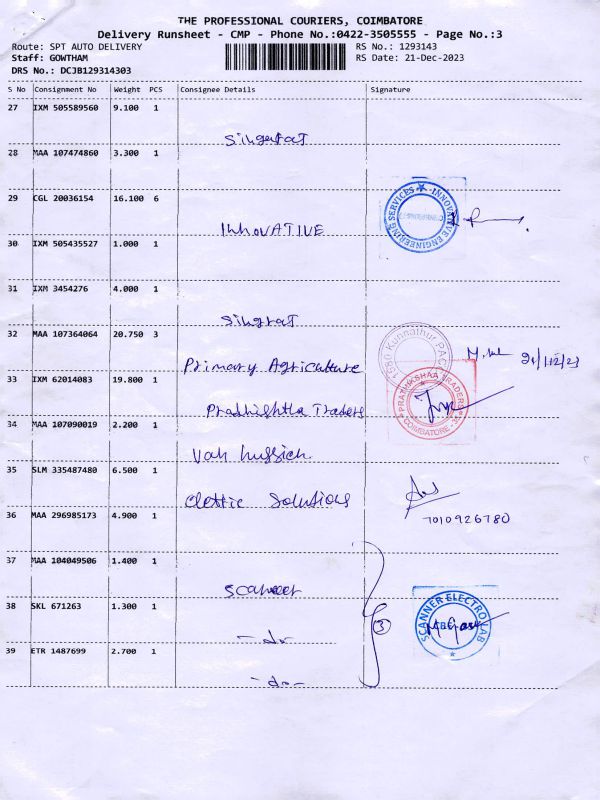 THE PROFESSIONAL COURIERS, COIMBATORE
Delivery Runsheet - CMP - Phone No.:0422-3505555 - Page No.:3
Route: SPT AUTO DELIVERY RS No.: 1293143
Staff: GOWTHAM RS Date: 21-Dec-2023
DRS No.: DCJB129314303
S No Consignment No Weight PCS Consignee Details Signature
27 IXM 505589560 9.100 1
28 MAA 107474860 3.300 1
29 CGL 20036154 16.100 6
INNOVATIVE ENGINEERING SERVICES
InnovATIVE
30 IXM 505435527 1.000 1
31 IXM 3454276 4.000 1
32 MAA 107364064 20.750 3
Kunnathur PAC
21/12/23
Primary Agriculture
33 IXM 62014083 19.800 1
PRATHIKSHAA TRADERS
COIMBATORE
Traders
34 MAA 107090019 2.200 1
35 SLM 335487480 6.500 1
Solutions
7010926780
36 MAA 296985173 4.900 1
37 MAA 104049506 1.400 1
SCANNER ELECTRO LAB
38 SKL 671263 1.300 1
3
- do -
39 ETR 1487699 2.700 1
- do -